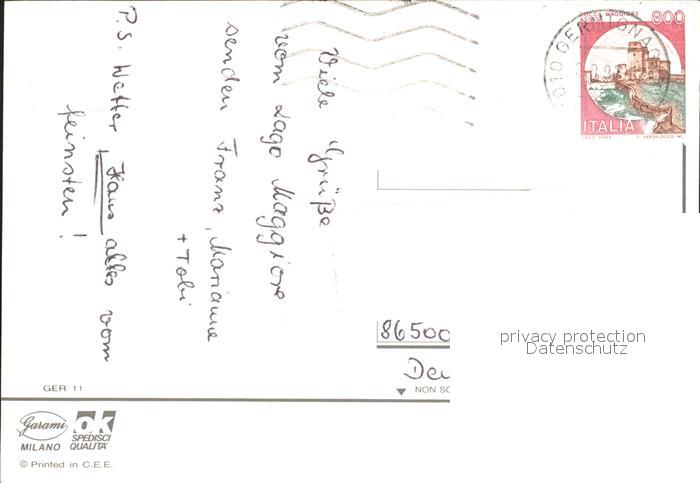 Viele Grüße
vom Lago Maggiore
senden Franz, Marianne
+ Tobi
P.S. Wetter, Haus alles vom
feinsten!
800
ITALIA
86500
privacy protection
Datenschutz
GER 11
NON SC
Garami
MILANO
OK
SPEDISCI
QUALITÀ
© Printed in C.E.E.